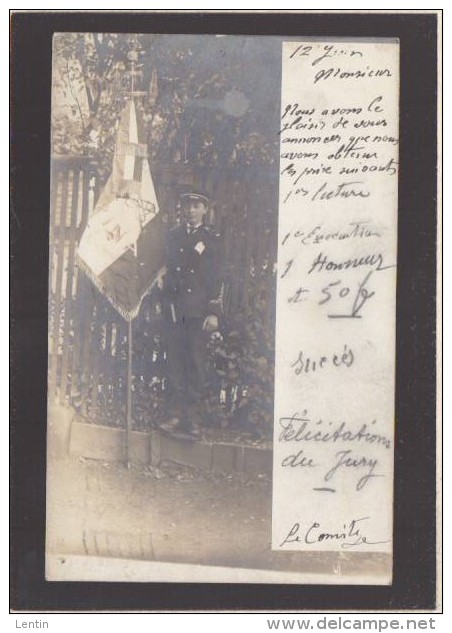 12 Juin
Monsieur
Nous avons le
plaisir de vous
annoncer que nous
avons obtenu
les prix suivants
1er lecture
1er Execution
1 Honneur
et 50f
Succès
Félicitations
du Jury
Le Comité
Lentin
www.delcampe.net